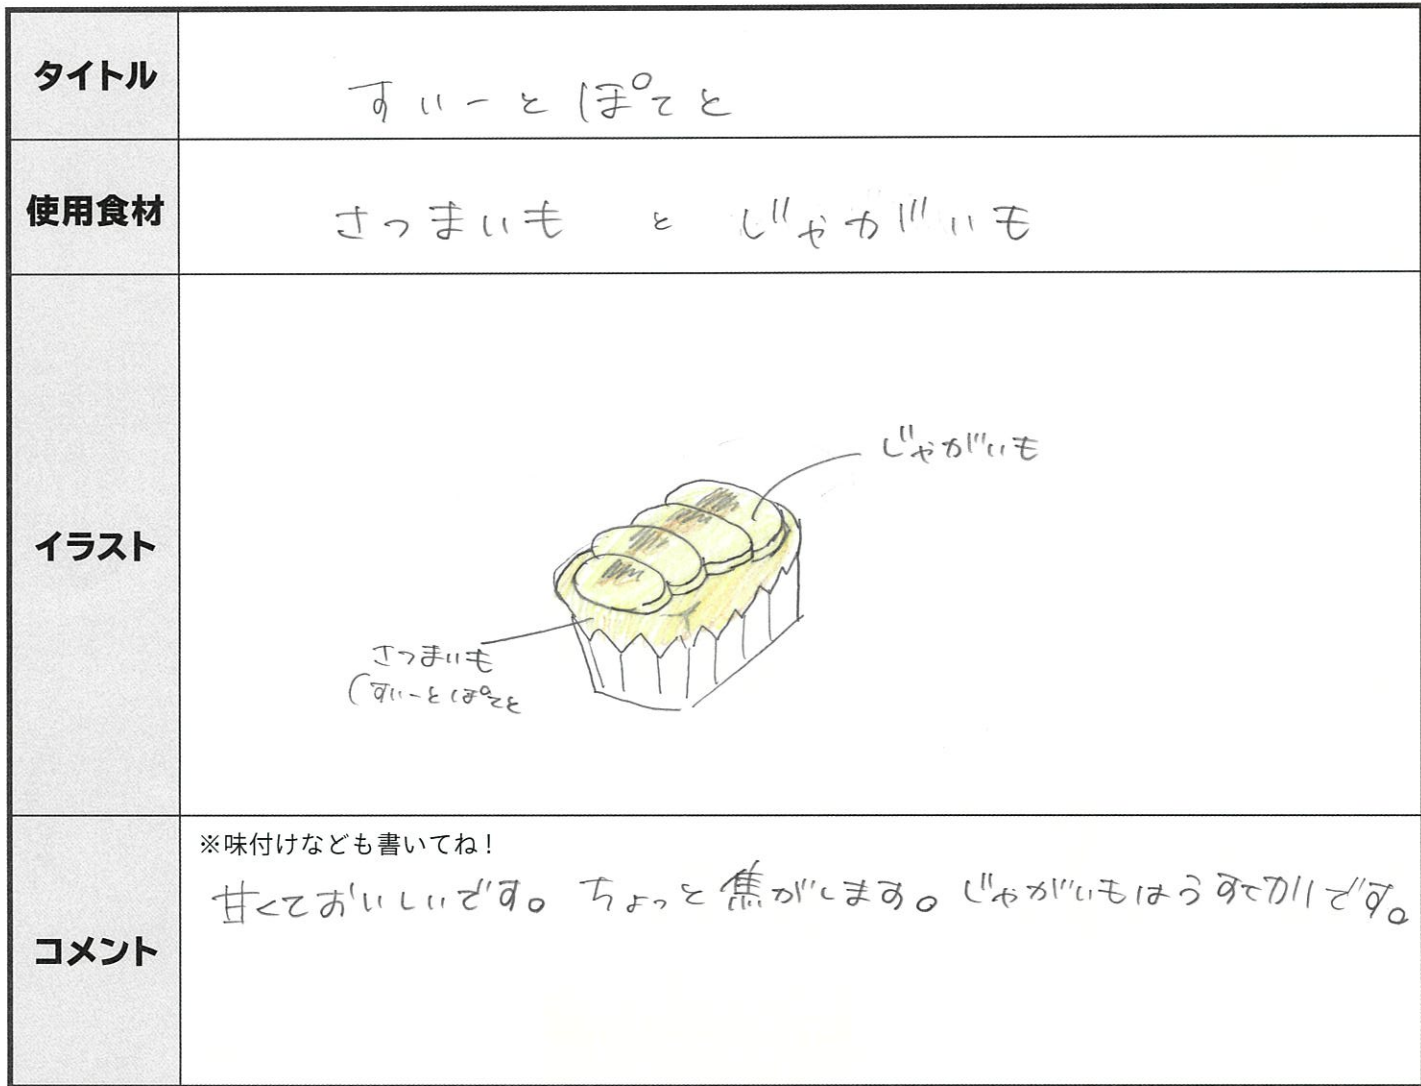 タイトル
すいーとぽてと
使用食材
さつまいも と じゃがいも
イラスト
じゃがいも
さつまいも
(すいーとぽてと
コメント
※味付けなども書いてね！
甘くておいしいです。ちょっと焦がします。じゃがいもはうす切りです。